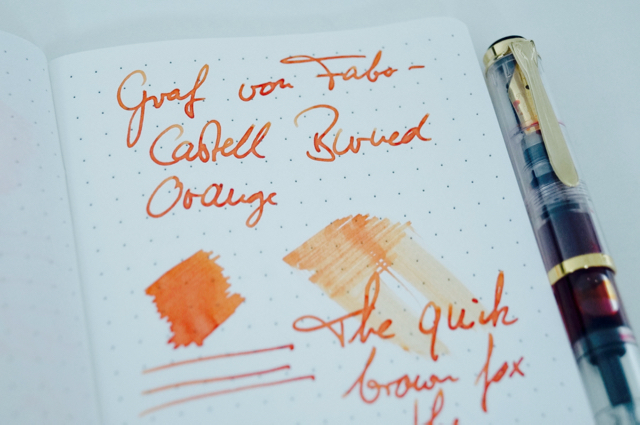 Graf von Faber-
Castell Burned
Orange
The quick
brown fox
the